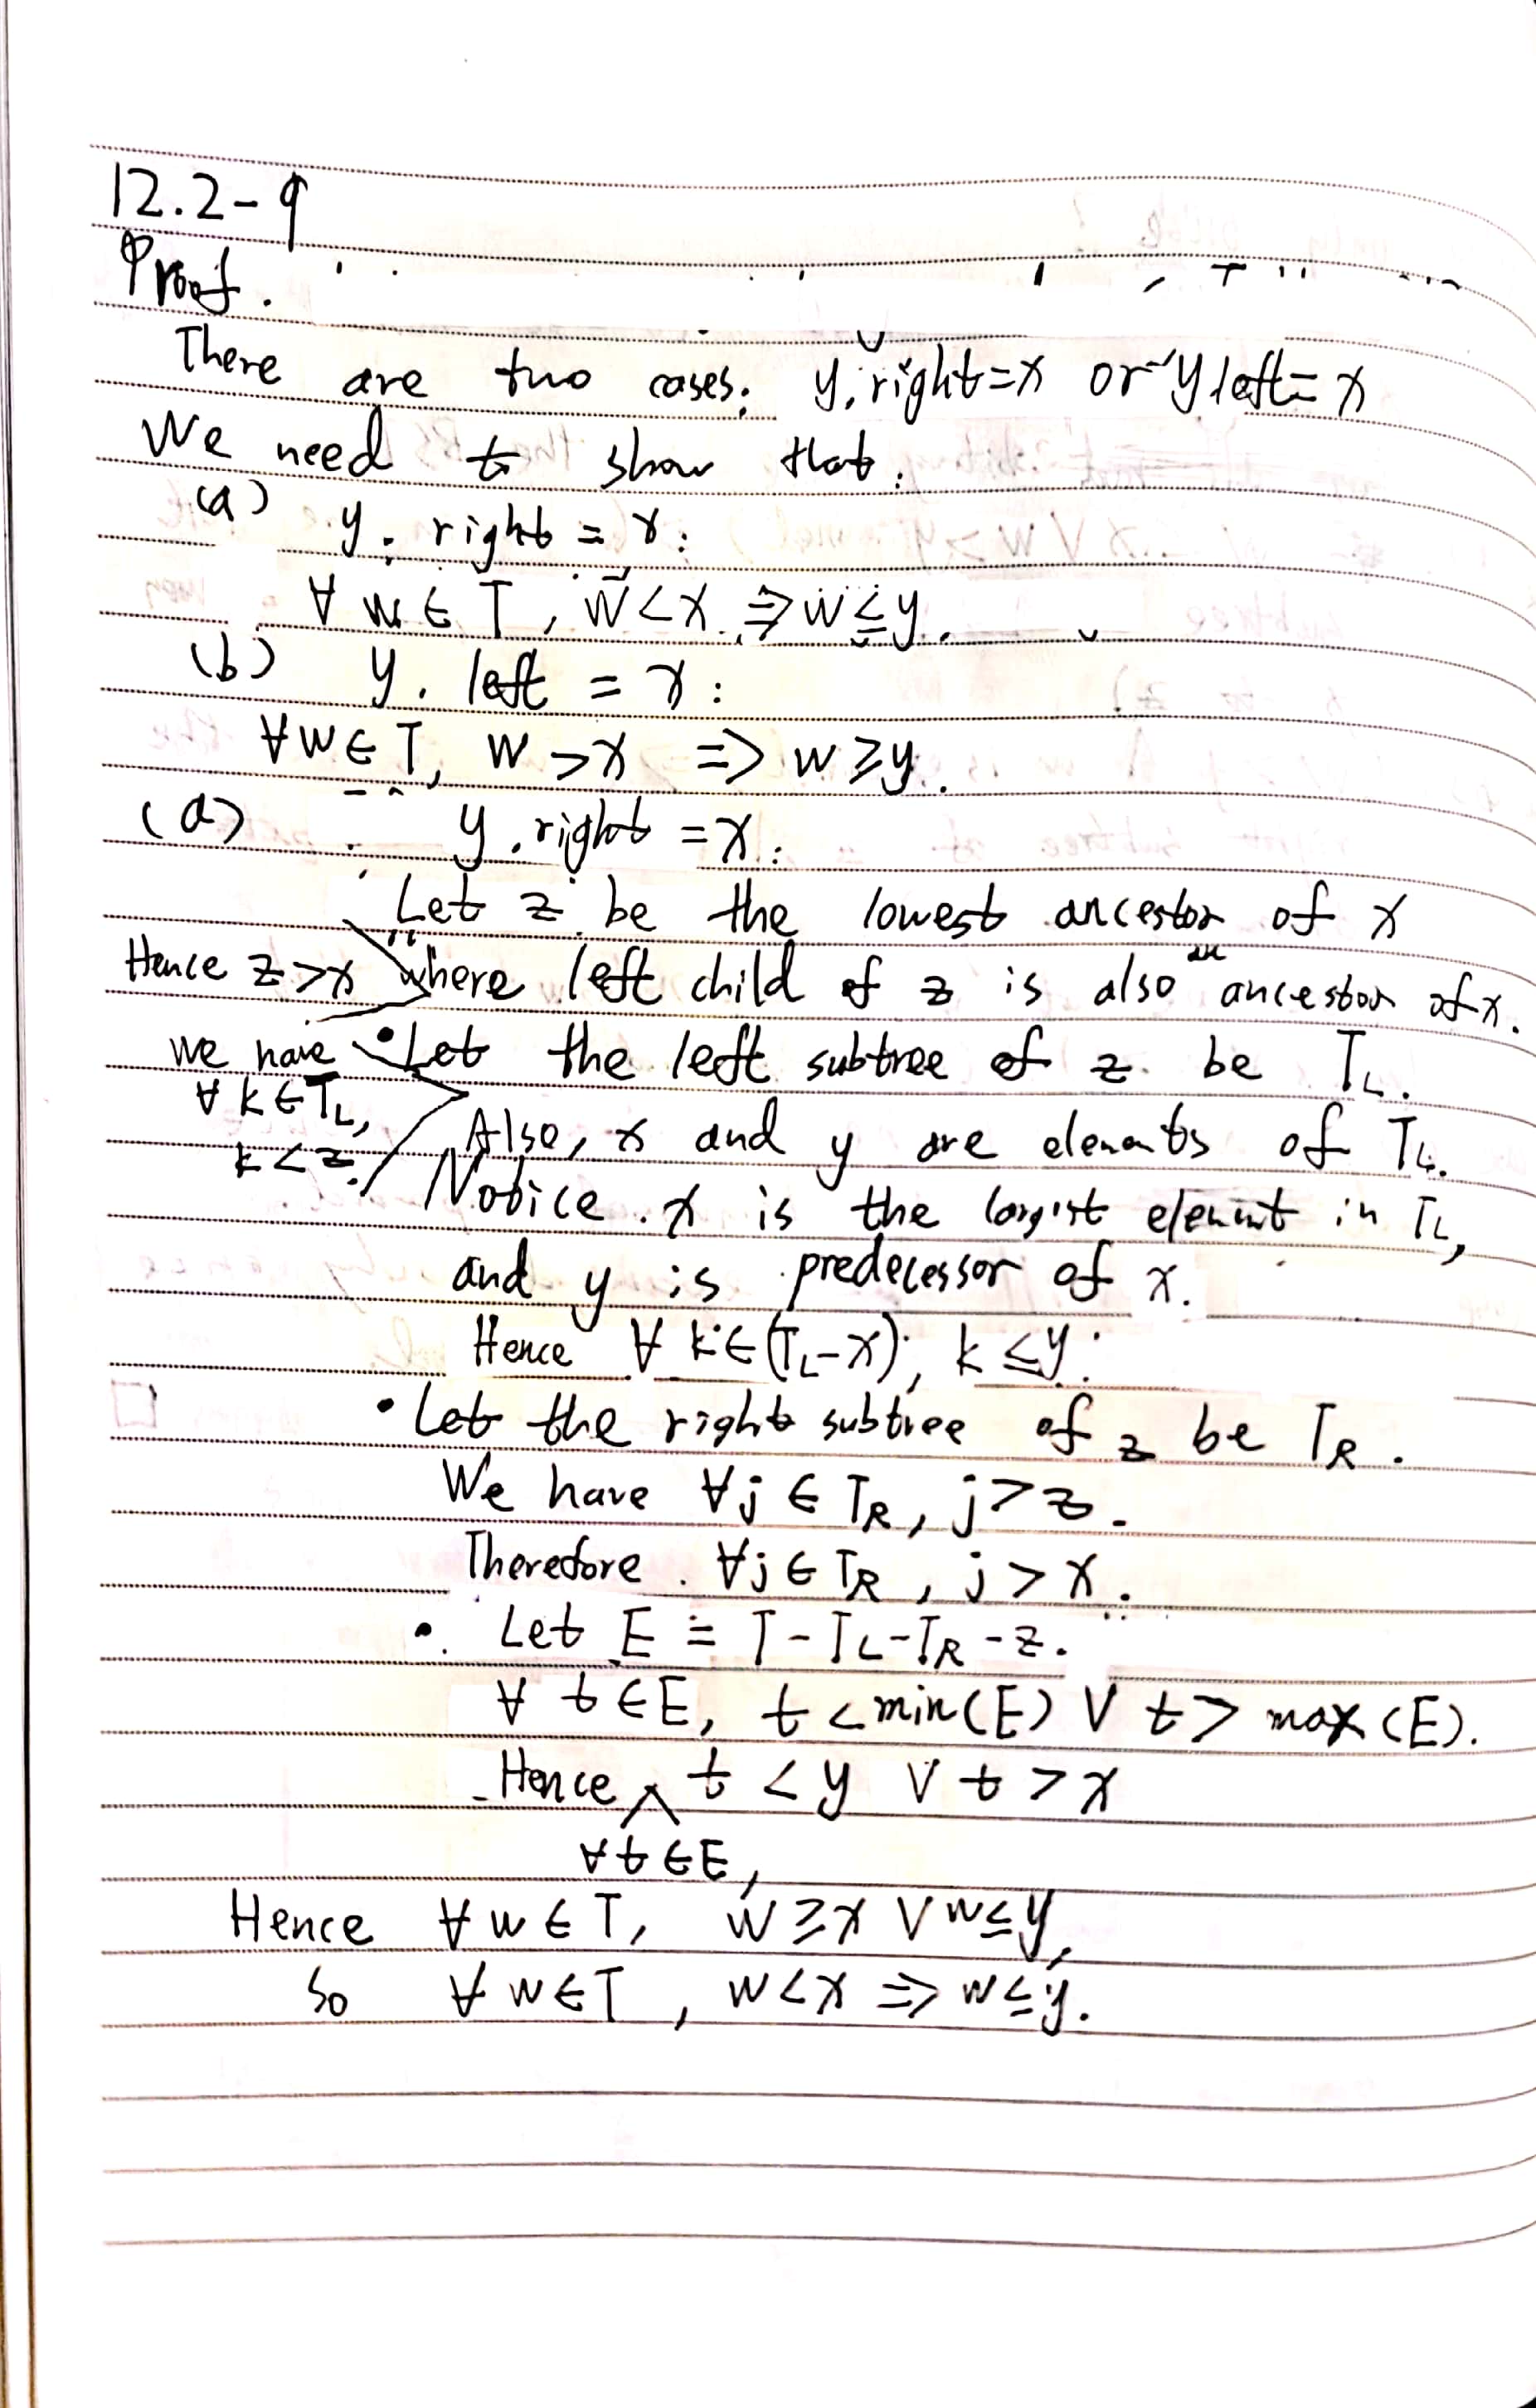 12.2-9
Proof.
There are two cases: y.right=x or y.left=x
We need to show that:
(a) y.right = x:
∀ w ∈ T, w<x ⇒ w≤y.
(b) y.left = x:
∀w∈T, w>x => w≥y.
(a) y.right = x:
Let z be the lowest ancestor of x
Hence z>x where left child of z is also an ancestor of x.
we have • Let the left subtree of z be T_L.
∀ k∈T_L,
Also, x and y are elements of T_L.
k<z.
Notice x is the largest element in T_L,
and y is predecessor of x.
Hence ∀ k∈(T_L-x), k≤y.
• Let the right subtree of z be T_R.
We have ∀j ∈ T_R, j>z.
Therefore ∀j∈T_R, j>x.
• Let E = T-T_L-T_R-z.
∀ t∈E, t<min(E) ∨ t>max(E).
Hence ∧ t<y ∨ t>x
∀t∈E,
Hence ∀w∈T, w≥x ∨ w≤y,
So ∀w∈T, w<x ⇒ w≤y.